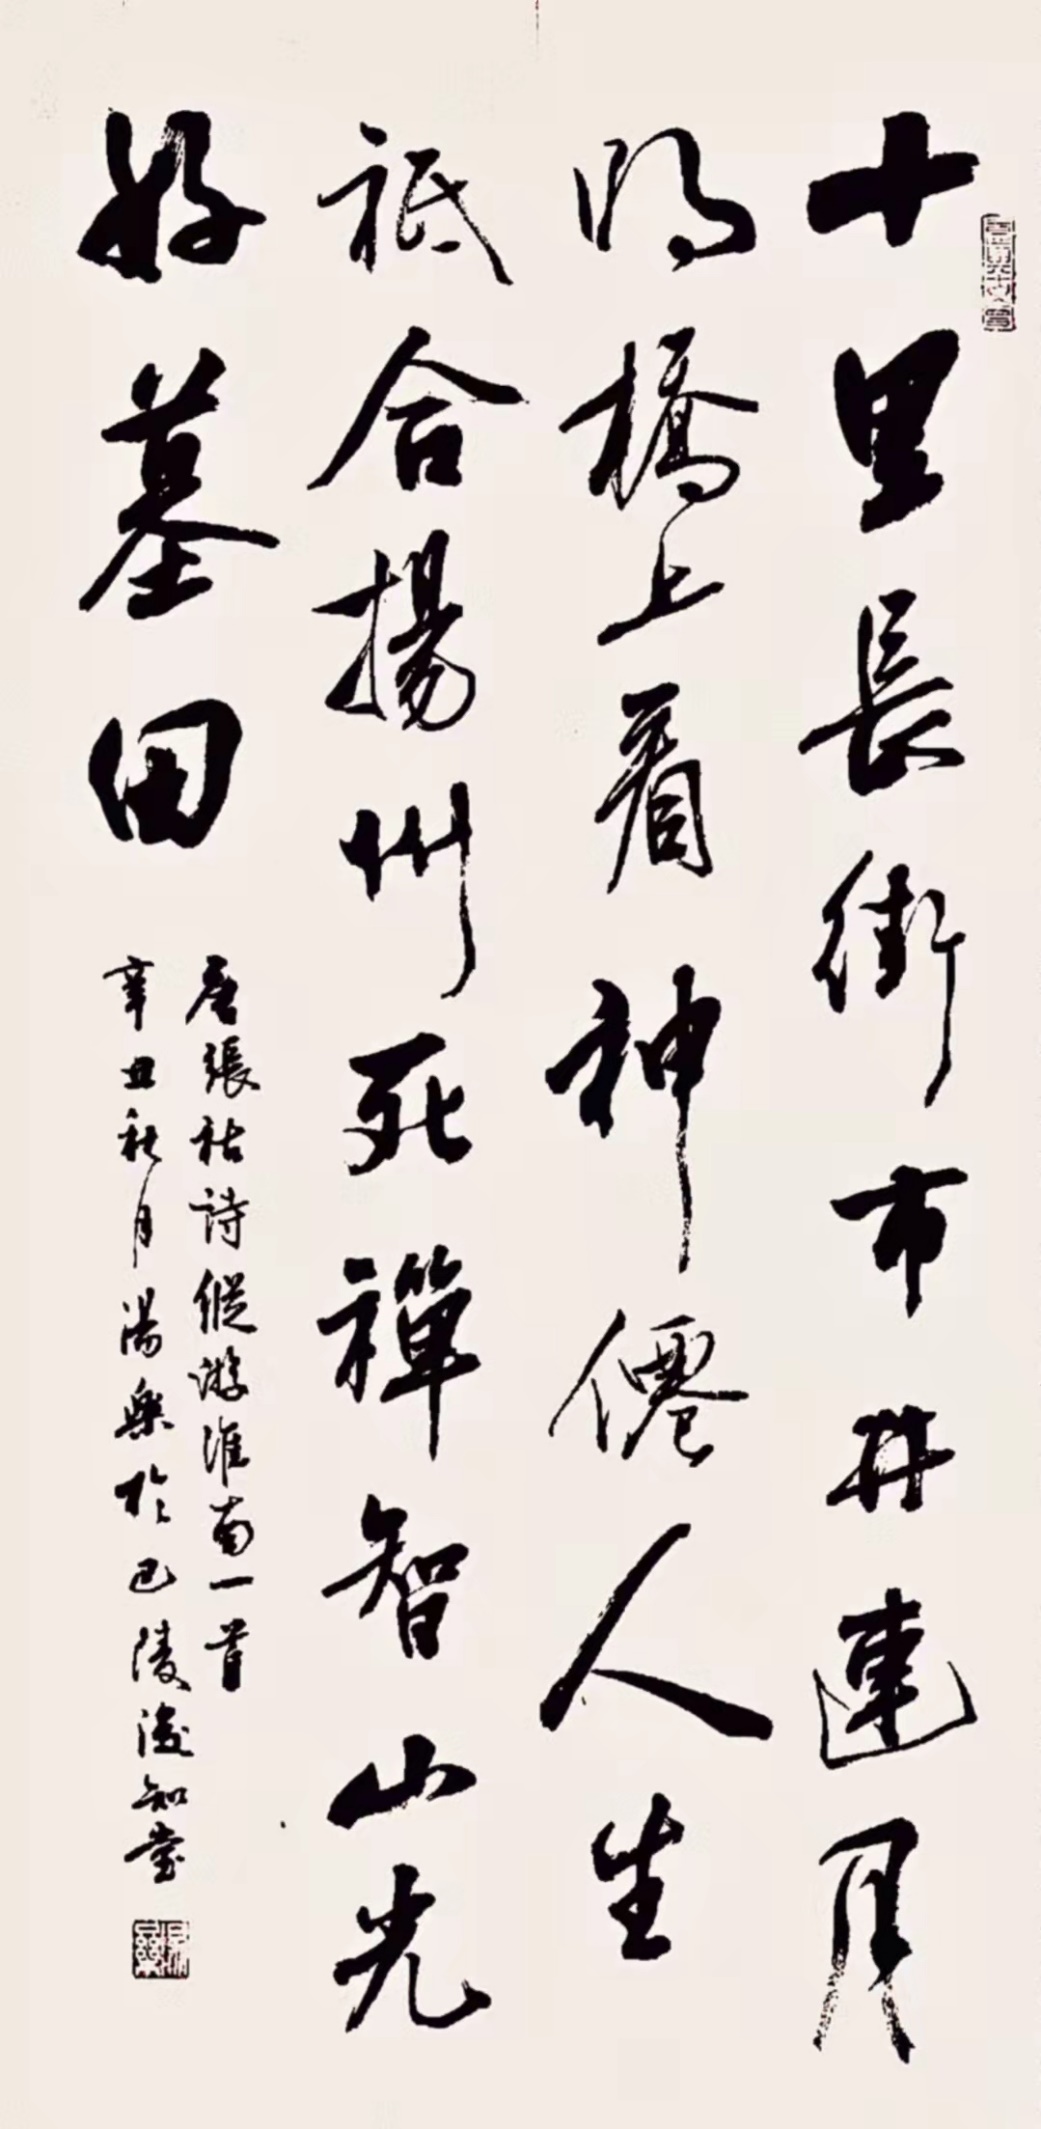 十里長街市井連月
明橋上看神僊人生
祗合揚州死禪智山光
好墓田
唐張祜詩縱游淮南一首
辛丑秋月湯樂於巴陵後知堂